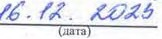 16.12. 2025
(дата)